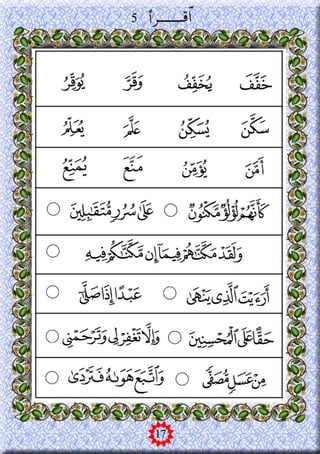 اَقــرأ 5
خَفَّفَ يُخَفِّفُ وَقَّرَ يُوَقِّرُ
سَكَّنَ يُسَكِّنُ عَلَّمَ يُعَلِّمُ
اَمَّنَ يُؤَمِّنُ مَنَّعَ يُمَنِّعُ
كَاَنَّهُمْ لُؤْلُؤٌ مَّكْنُوْنٌ ○ عَلٰى سُرُرٍ مُّتَقٰبِلِيْنَ ○
وَلَقَدْ مَكَّنّٰهُمْ فِيْمَآ اِنْ مَّكَّنّٰكُمْ فِيْهِ
اَرَءَيْتَ الَّذِيْ يَنْهٰى ○ عَبْدًا اِذَا صَلّٰى ○
حَقًّا عَلَى الْمُحْسِنِيْنَ ○ وَاِلَّا تَغْفِرْ لِيْ وَتَرْحَمْنِيْ ○
مِنْ عَسَلٍ مُّصَفًّى ○ وَاتَّبَعَ هَوٰىهُ فَتَرْدٰى ○
17